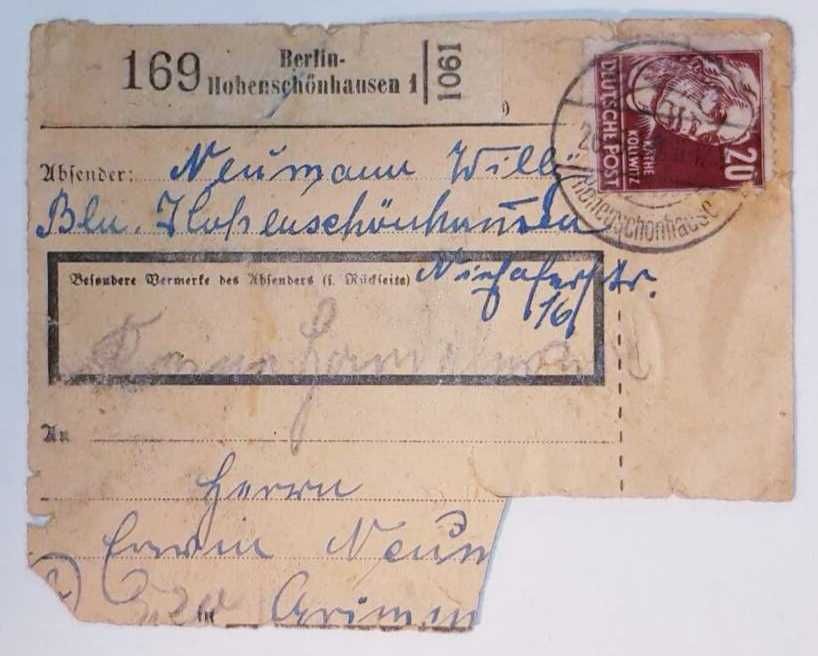 169 Berlin-
Hohenschönhausen 1
1061
DEUTSCHE POST
KÄTHE
KOLLWITZ
20
Hohenschönhause
Absender: Neumann Willi
Bln. Hohenschönhausen
Besondere Vermerke des Absenders (s. Rückseite)
16
Keine Handelsware
An
Herrn
Erwin Neum
in Grimm